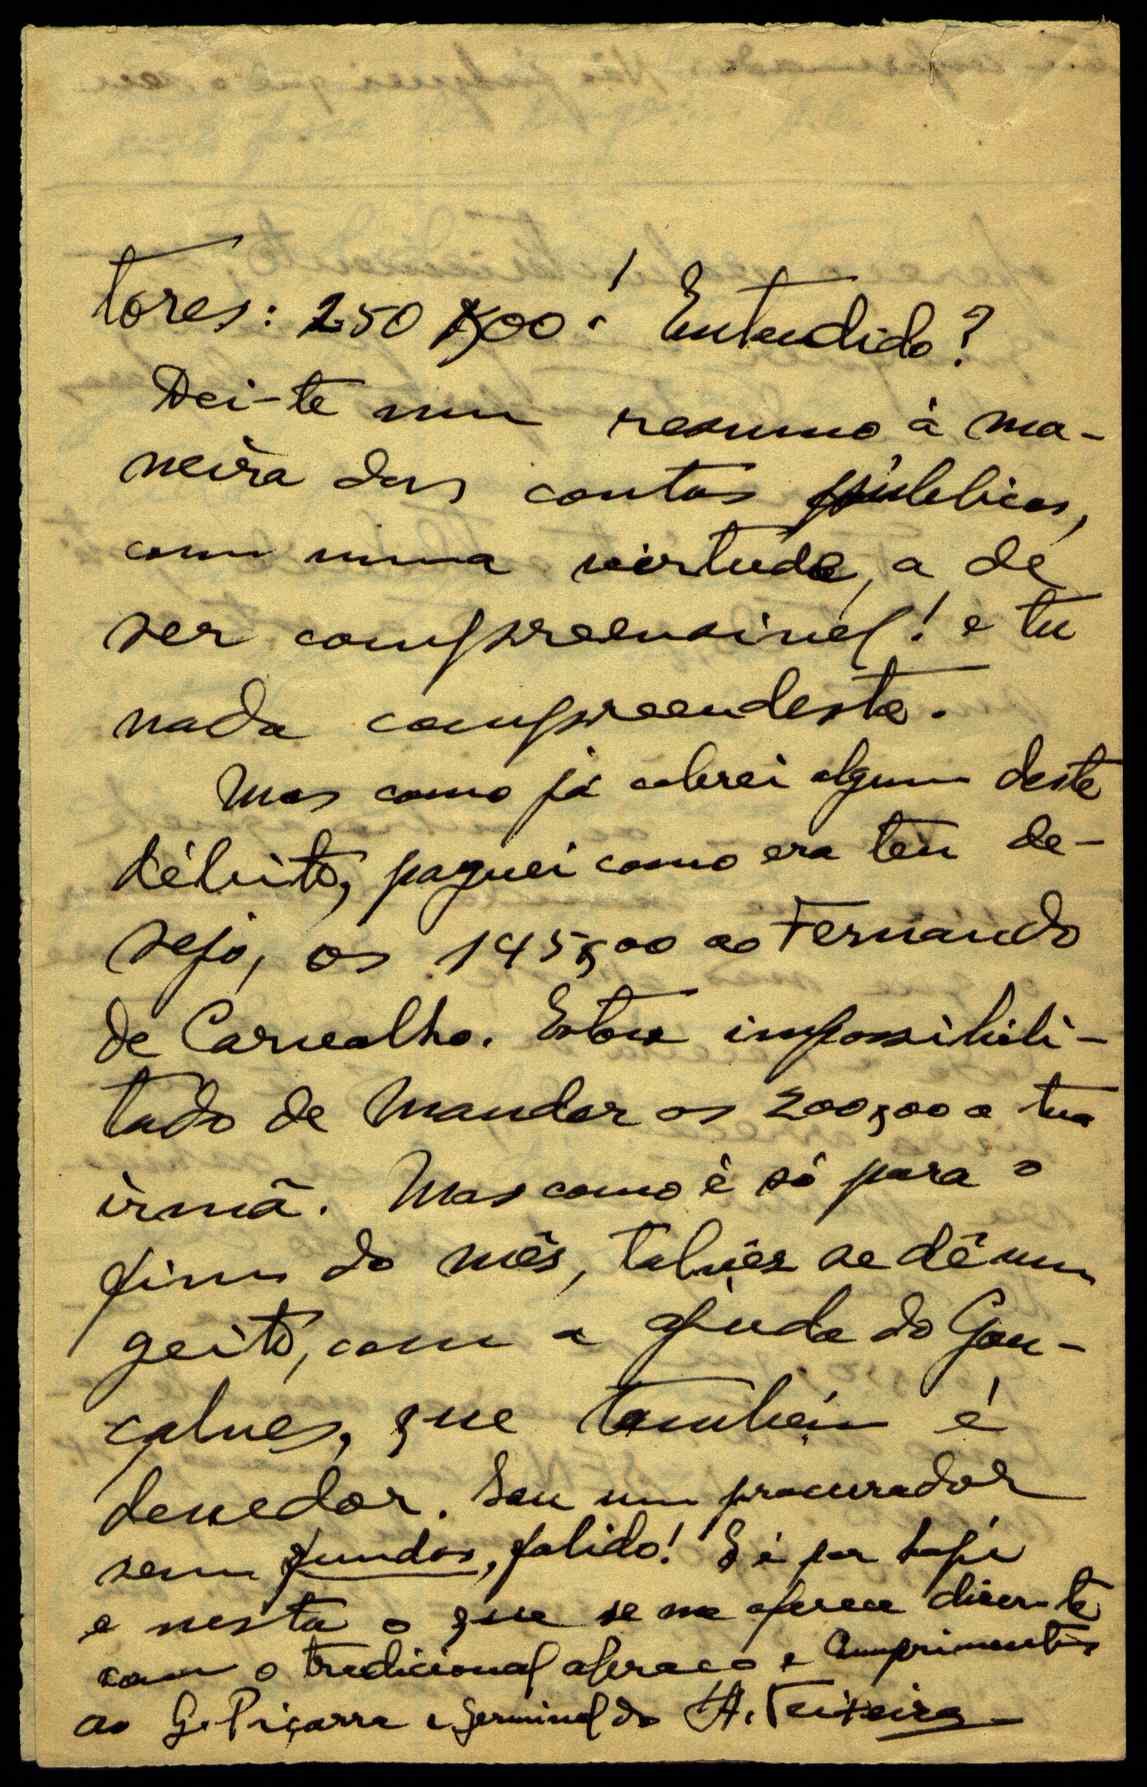 tores: 250$00! Entendido?
Dei-te um resumo à ma-
neira das contas públicas,
com uma virtude, a de
ser compreensivel! e tu
nada compreendeste.
Mas como já cobrei algum deste
débito, paguei como era teu de-
sejo, os 145$00 ao Fernando
de Carvalho. Estou impossibili-
tado de mandar os 200$00 a tua
irmã. Mas como é só para o
fim do mês, talvês se dê um
geito, com a ajuda do Gon-
çalves, que também é
devedor. Sou um procurador
sem fundos, falido! E é por hoje
e nesta o que se me oferece dizer-te
com o tradicional abraço e cumprimentos
ao G. Piçarra e Germinal do A. Teixeira